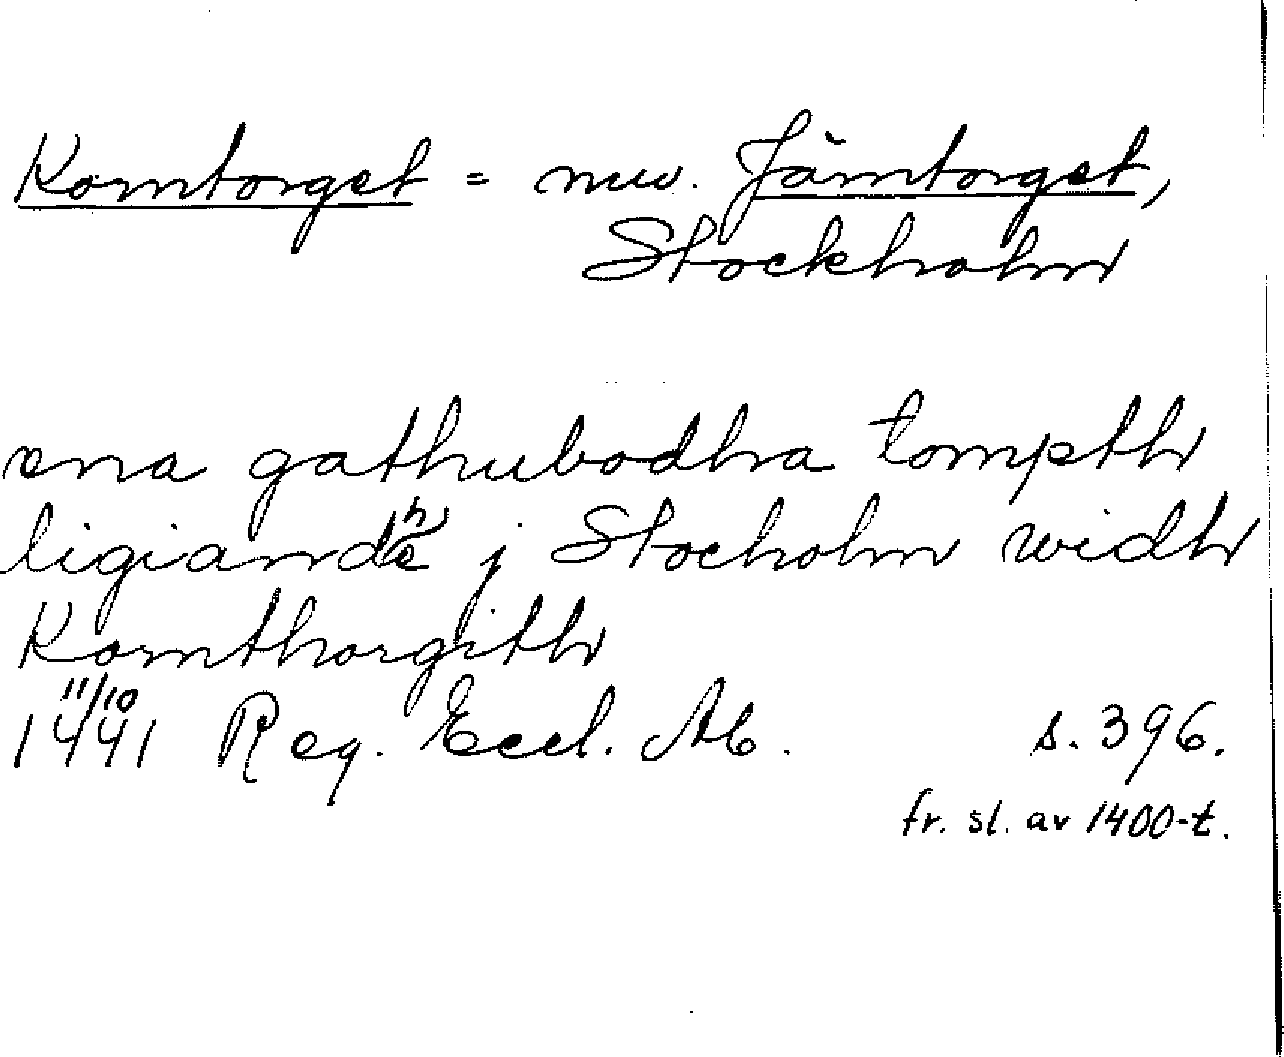 Korntorget = nuv. Järntorget,
Stockholm
ena gathubodha tompth
ligiandhe j Stocholm widh
Kornthorgith
11/10
1441 Reg. Eccl. Ab. s. 396.
fr. sl. av 1400-t.